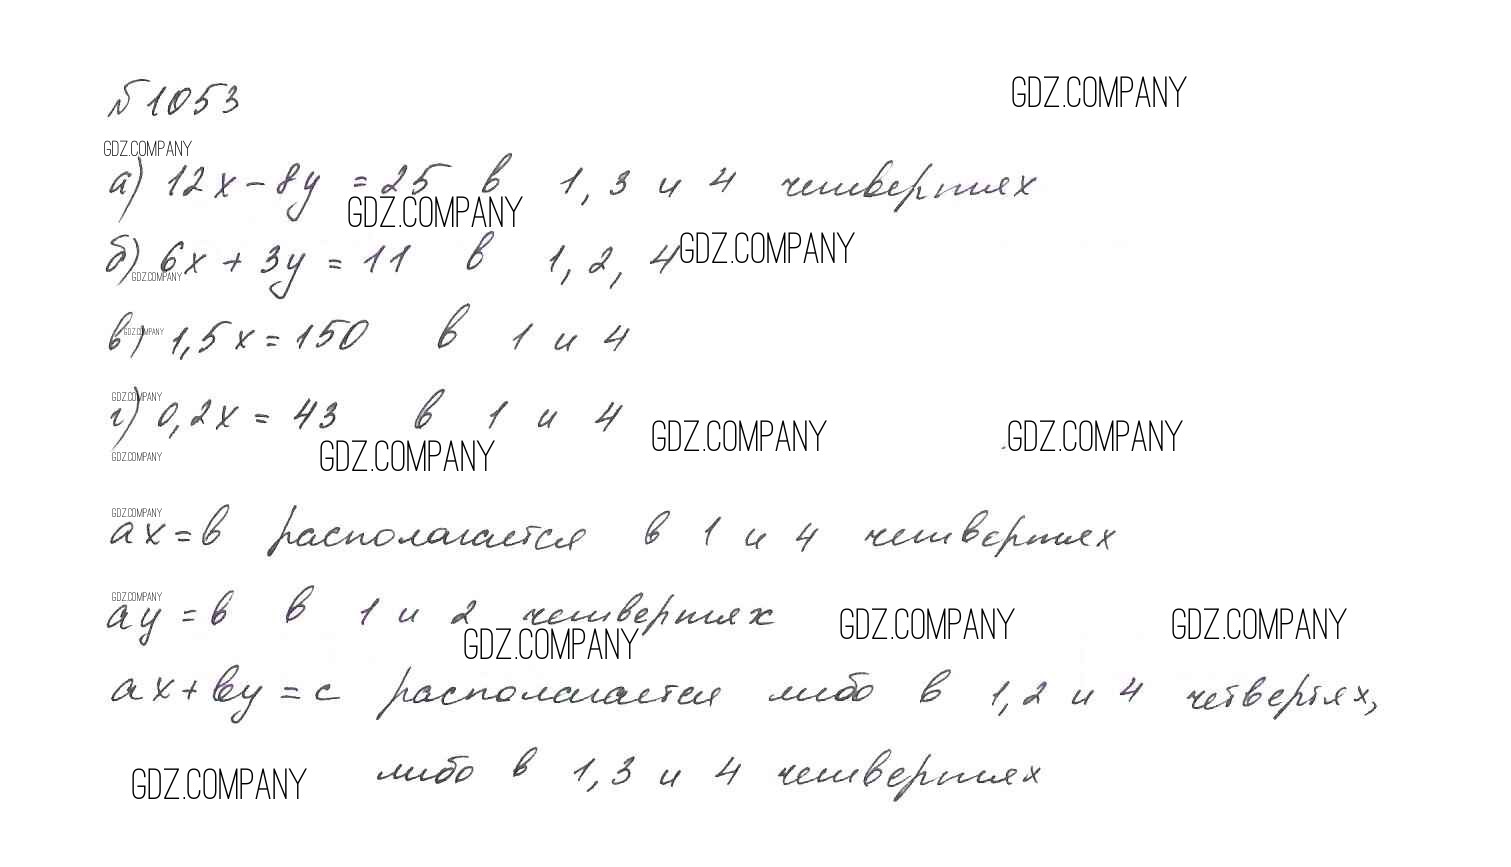 №1053
GDZ.COMPANY
GDZ.COMPANY
а) 12x - 8y = 25 в 1, 3 и 4 четвертях
GDZ.COMPANY
б) 6x + 3y = 11 в 1, 2, 4
GDZ.COMPANY
GDZ.COMPANY
в) 1,5x = 150 в 1 и 4
GDZ.COMPANY
GDZ.COMPANY
г) 0,2x = 43 в 1 и 4
GDZ.COMPANY
GDZ.COMPANY
GDZ.COMPANY
GDZ.COMPANY
GDZ.COMPANY
ax = в располагается в 1 и 4 четвертях
GDZ.COMPANY
ay = в в 1 и 2 четвертях
GDZ.COMPANY
GDZ.COMPANY
GDZ.COMPANY
ax + вy = c располагается либо в 1, 2 и 4 четвертях,
либо в 1, 3 и 4 четвертях
GDZ.COMPANY